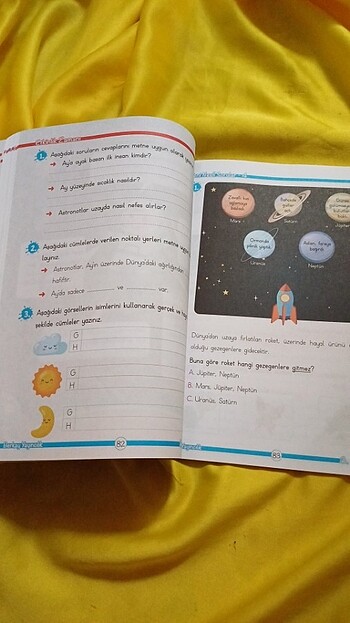 Etkinlik Zamanı
1. Aşağıdaki soruların cevaplarını metne uygun olarak
→ Ay'a ayak basan ilk insan kimdir?
→ Ay yüzeyinde sıcaklık nasıldır?
→ Astronotlar uzayda nasıl nefes alırlar?
2. Aşağıdaki cümlelerde verilen noktalı yerleri metne
layınız.
→ Astronotlar, Ay'ın üzerinde Dünya'daki ağırlığından
hafiftir.
→ Ay'da sadece ve var.
3. Aşağıdaki görsellerin isimlerini kullanarak gerçek ve
şekilde cümleler yazınız.
G
H
G
H
G
H
82
1.
Zenefi hızı
Mars
Bahçede
güller
Satürn
Jüpiter
Ormanda
piknik yaptık.
Uranüs
Aslan, fareye
bağırdı.
Neptün
Dünya'dan uzaya fırlatılan roket, üzerinde hayal ürünü
olduğu gezegenlere gidecektir.
Buna göre roket hangi gezegenlere gitmez?
A. Jüpiter, Neptün
B. Mars, Jüpiter, Neptün
C. Uranüs, Satürn
83